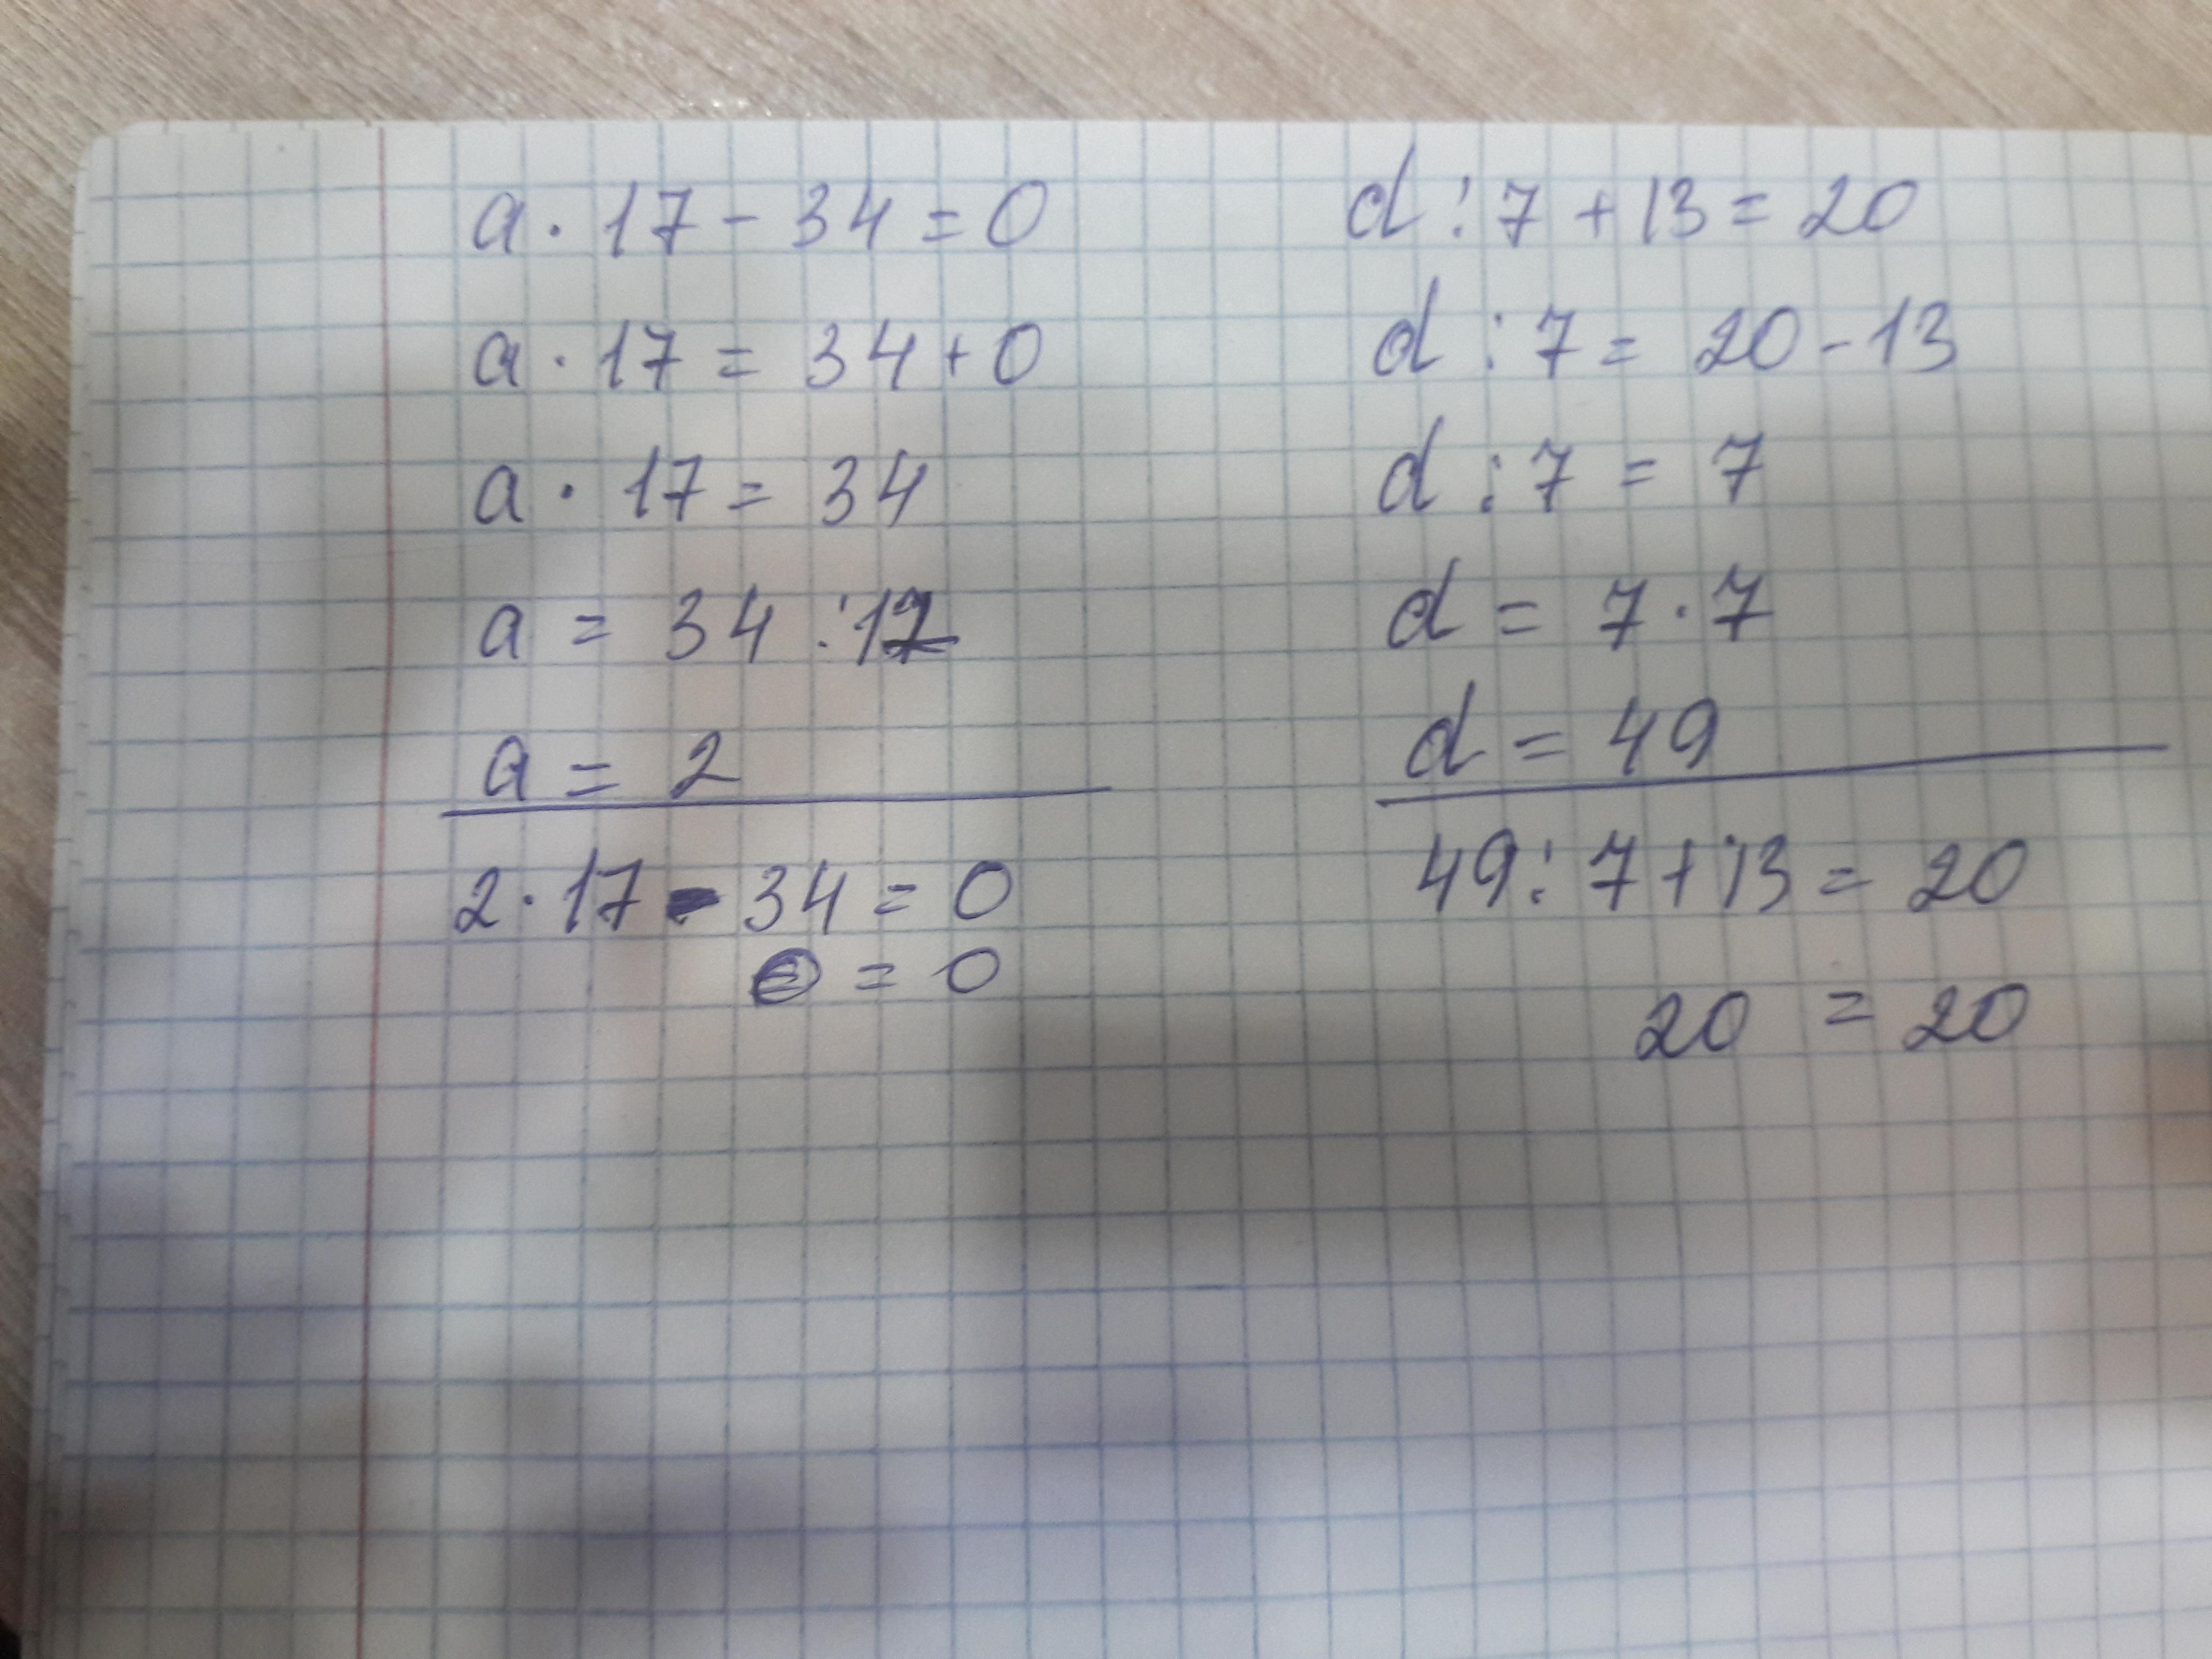 a · 17 - 34 = 0
a · 17 = 34 + 0
a · 17 = 34
a = 34 : 17
a = 2
2 · 17 - 34 = 0
= 0
d : 7 + 13 = 20
d : 7 = 20 - 13
d : 7 = 7
d = 7 · 7
d = 49
49 : 7 + 13 = 20
20 = 20